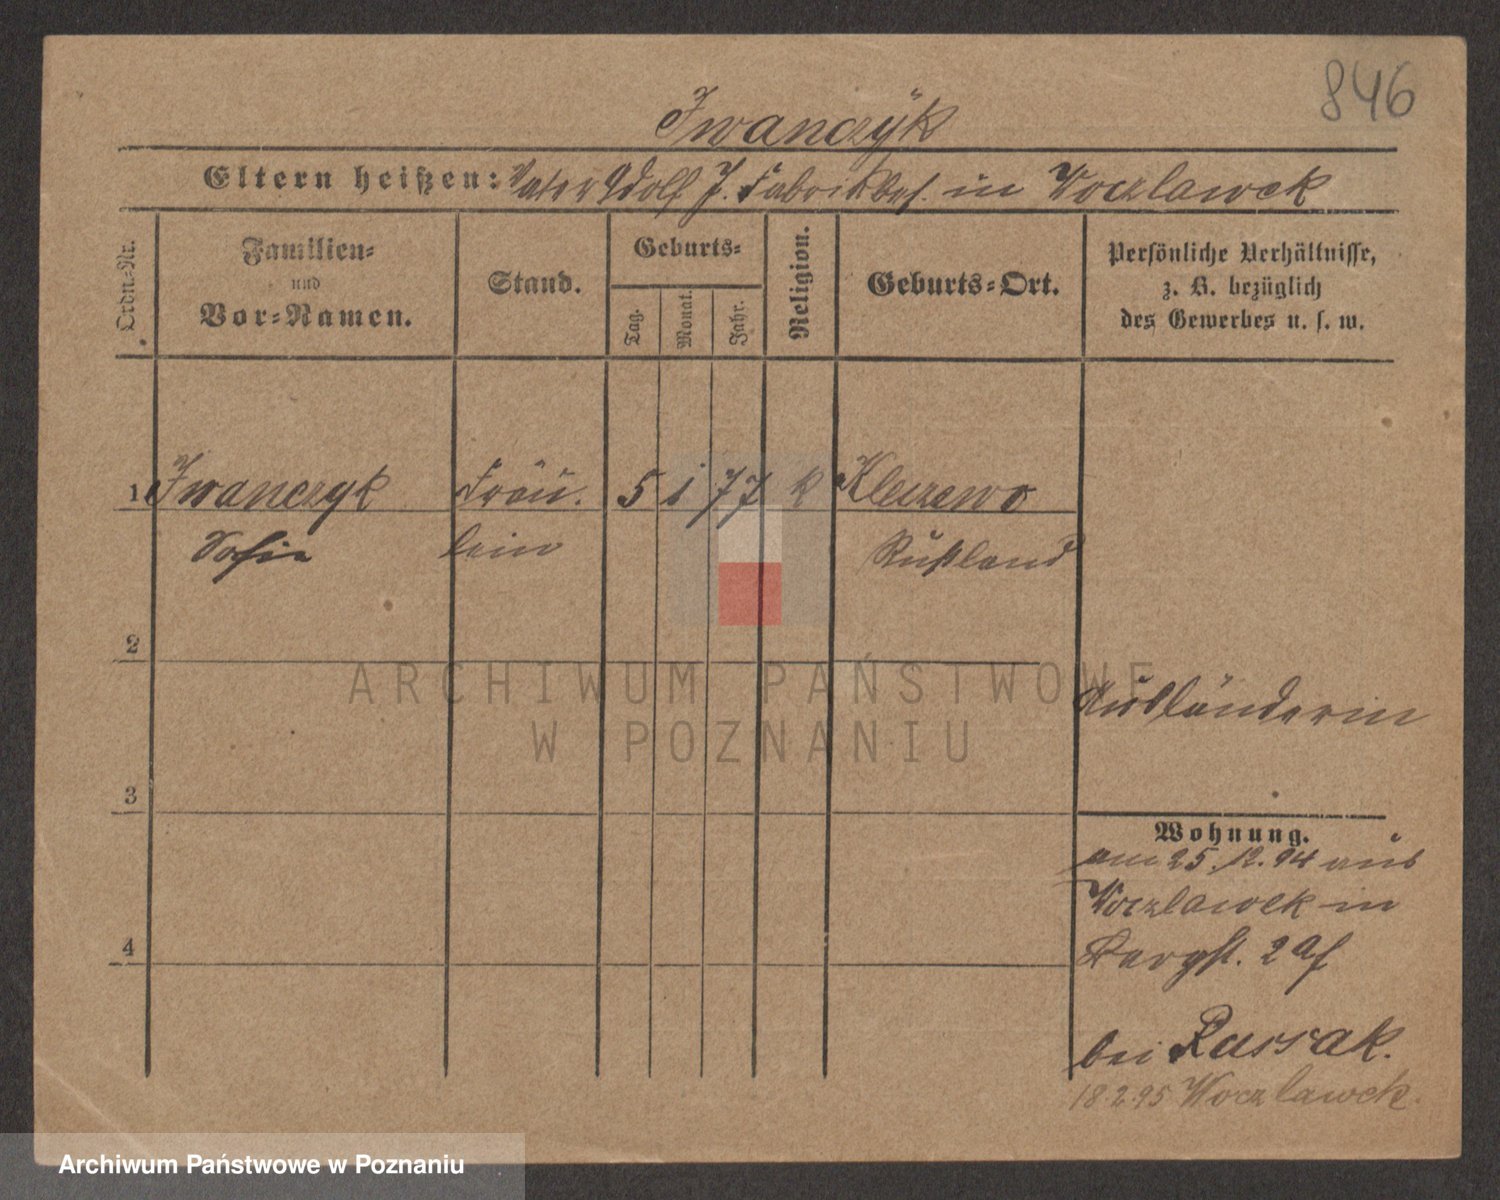 846
Iwanczÿk
Eltern heißen: Vater Adolf J. Fabrikbes. in Woczlawek
Ordn.-Nr.
Familien-
und
Vor-Namen.
Stand.
Geburts-
Tag.
Monat.
Jahr.
Religion.
Geburts-Ort.
Persönliche Verhältnisse,
z. B. bezüglich
des Gewerbes u. s. w.
1 Iwanczyk Fräu- 5 1 77 k Kleczewo
Sofie lein Rußland
2
Ausländerin
3
Wohnung.
am 25.12.94 aus
Woczlawek in
Bergst. 2
4
bei Russak.
18.2.95 Woczlawek.
ARCHIWUM PAŃSTWOWE
W POZNANIU
Archiwum Państwowe w Poznaniu